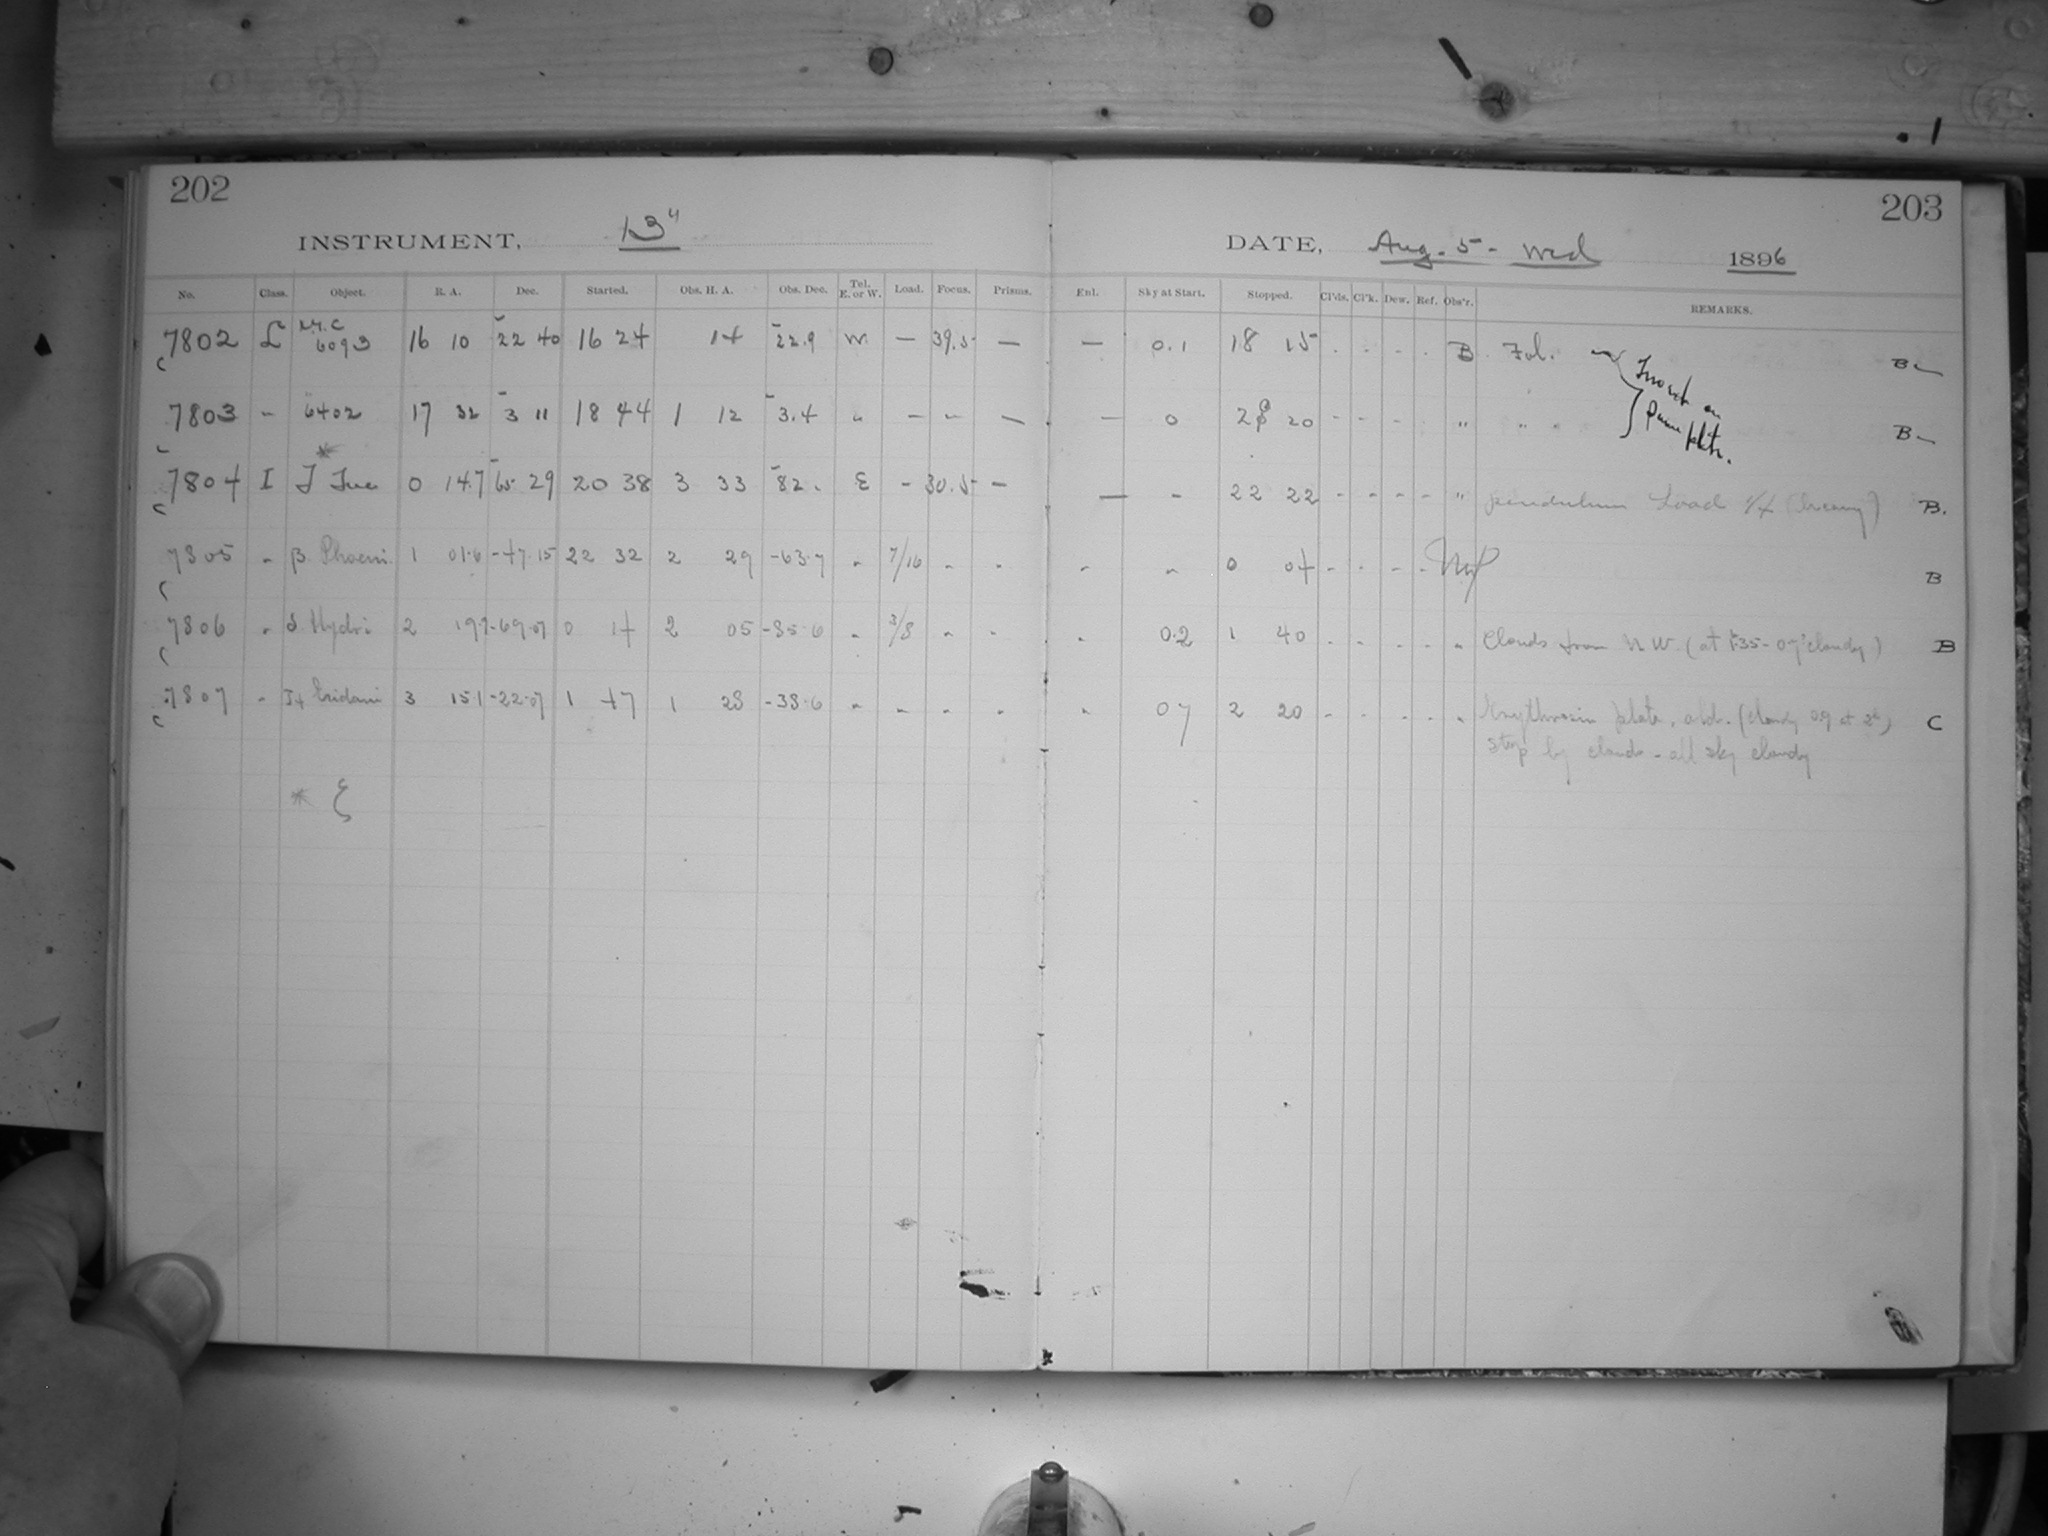 202
203
INSTRUMENT, 13"
DATE, Aug. 5 - Wed 1896
No. Class. Object. R. A. Dec. Started. Obs. H. A. Obs. Dec. Tel. E. or W. Load. Focus. Prisms. Enl. Sky at Start. Stopped. Cl'ds. Cl'k. Dew. Ref. Obs'r. REMARKS.
7802 L N.G.C 6093 16 10 -22 40 16 24 14 -22.9 W. — 39.5 — — 0.1 18 15 . . . . B. B-
7803 " 6402 17 32 -3 11 18 44 1 12 -3.4 " — " — — 0 20 - - - " " B-
7804 I 0 14.7 -65 29 20 38 3 33 -82. E - 30.5 — — - 22 22 - - - - " pendulum Load B.
7805 " β Phoeni. 1 01.6 -47.15 22 32 2 29 -63.7 " 7/16 " " " " 0 04 - - - - B
7806 " Hydri 2 19.7 -69.07 0 14 2 05 -85.6 " 3/8 " " " 0.2 1 40 - - - - " Clouds from N W. (at cloudy) B
7807 " Eridani 3 15.1 -22.07 1 47 1 28 -38.6 " " " " " 07 2 20 - - - - " Erythrosin plate, old. (cloudy 0.9 at 2h) C
stop by clouds - all sky cloudy
* ξ